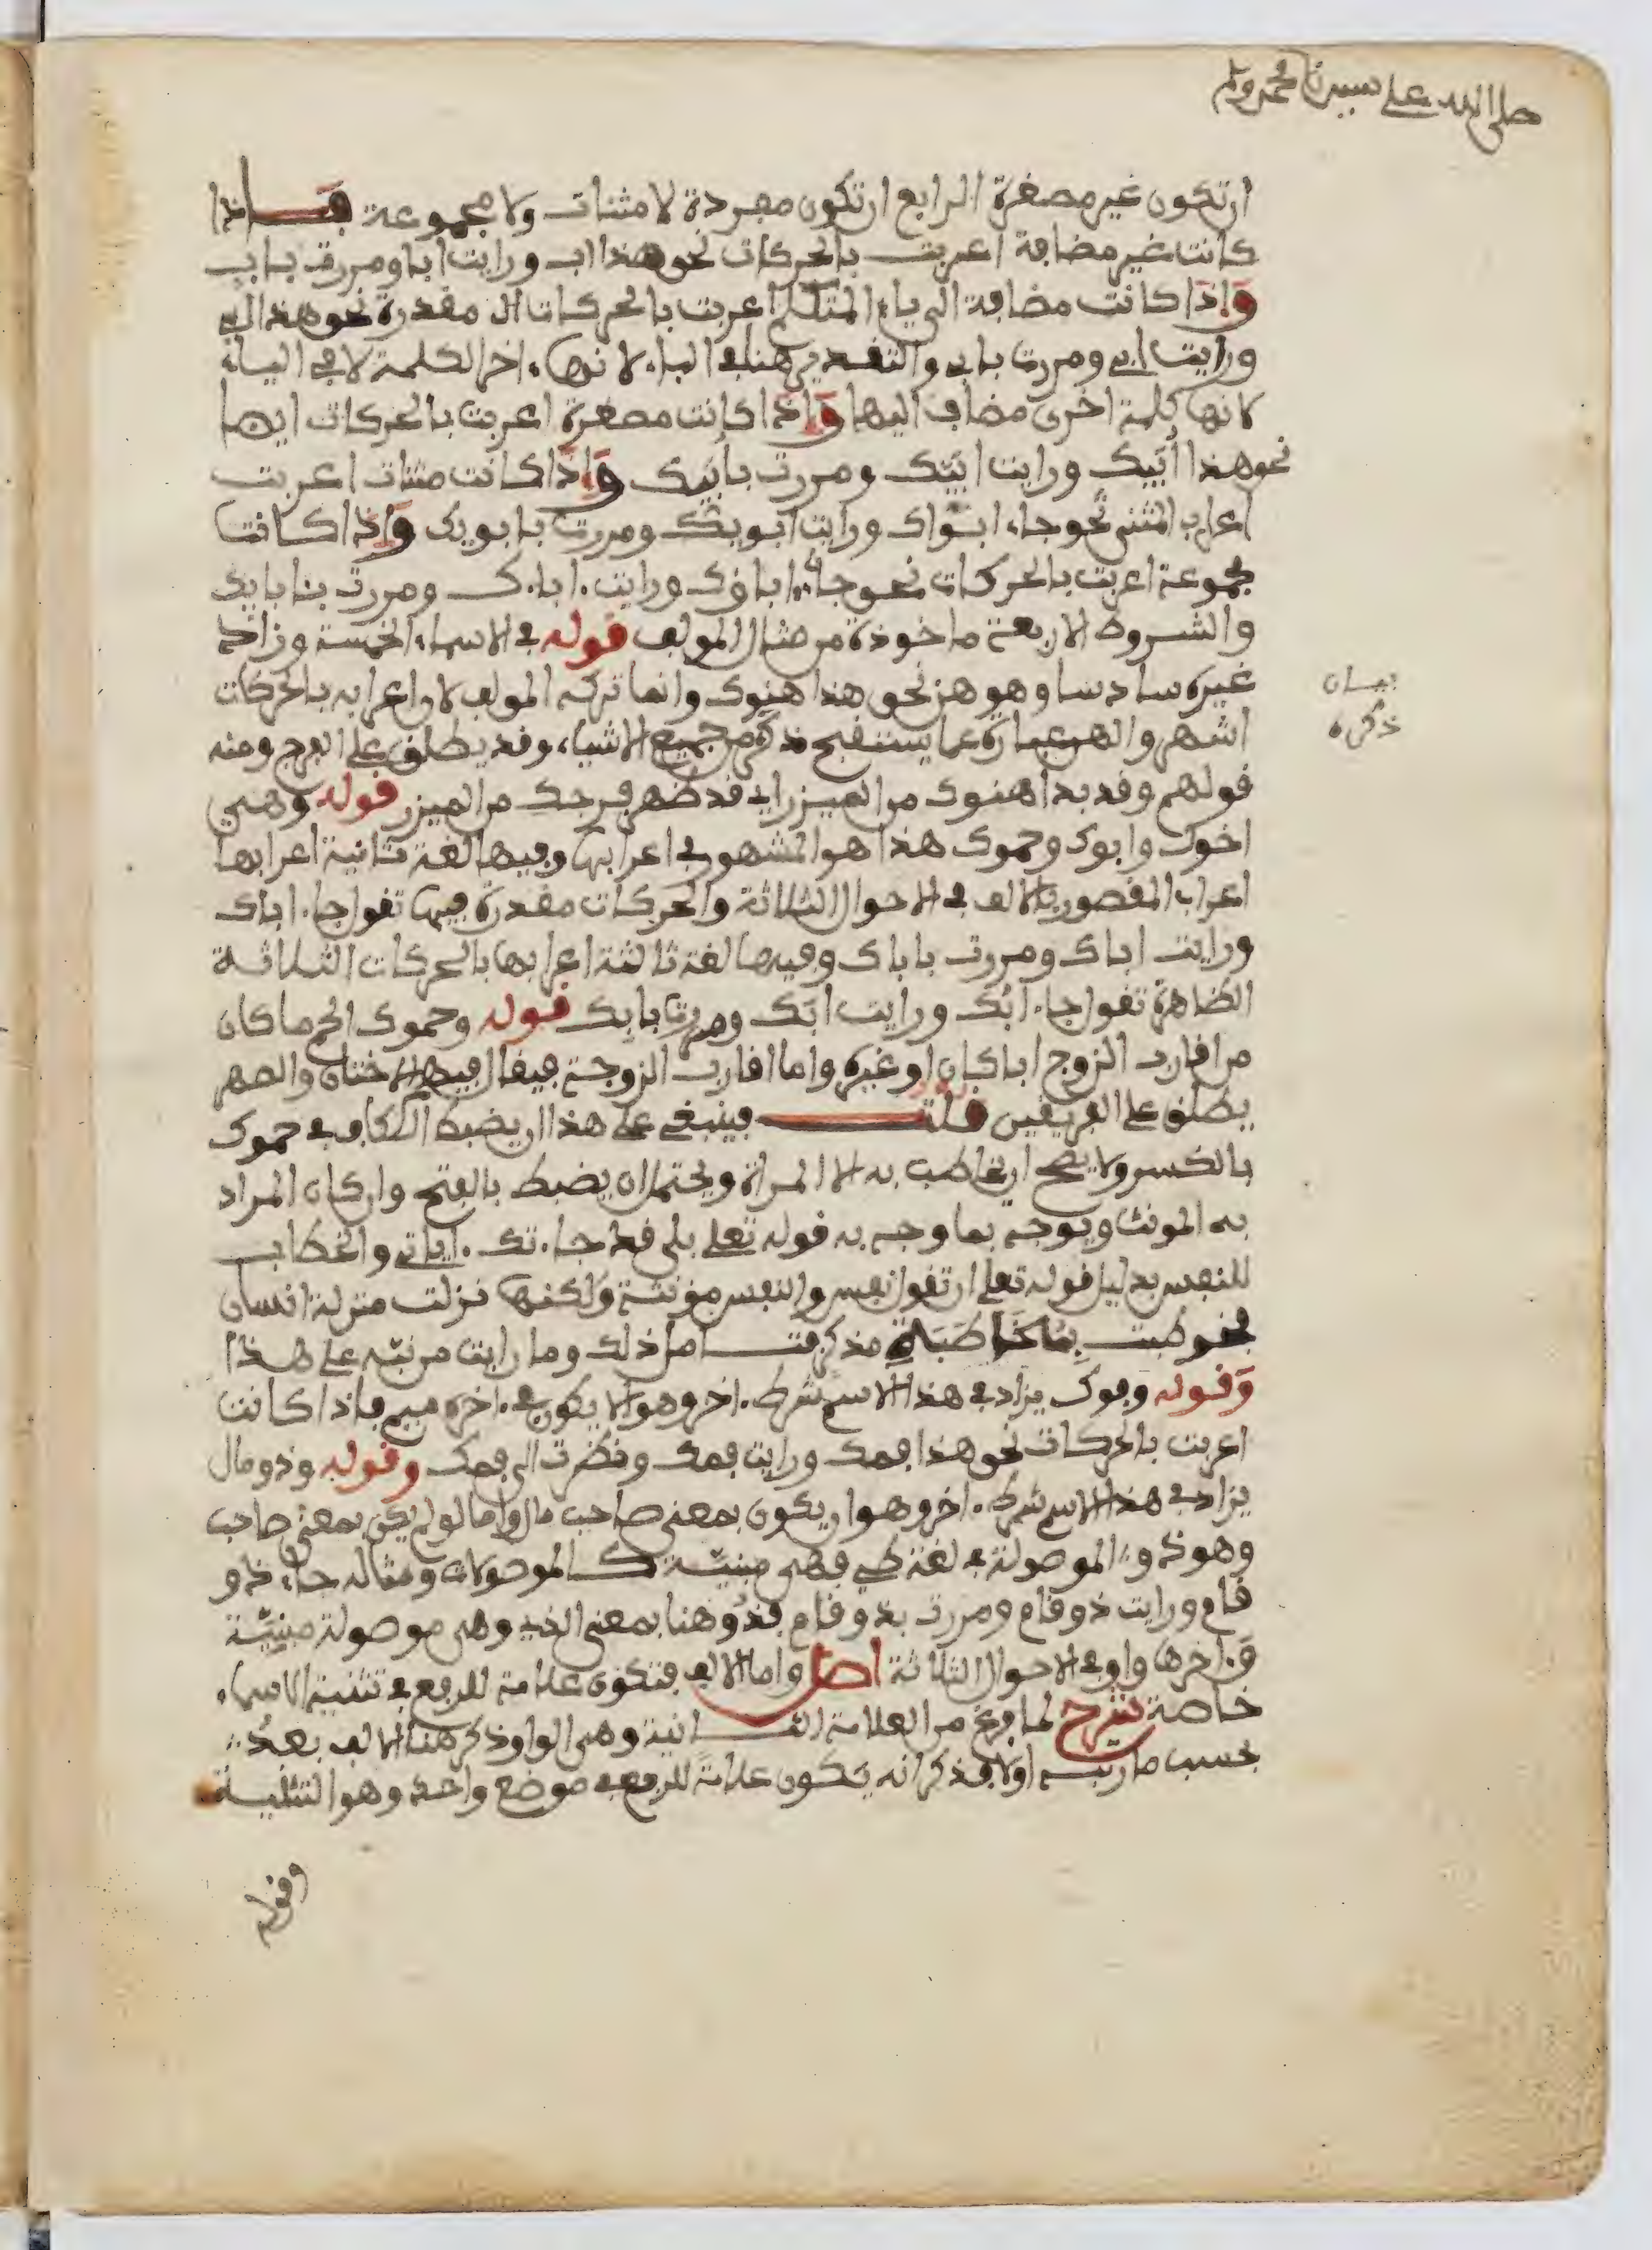 صلى الله على سيدنا محمد وءاله
ان تكون غير مصغرة الرابع ان تكون مفردة لا مثنات ولا مجموعة فاذا
كانت غير مضافة اعربت بالحركات نحو هذا اب ورايت ابا ومررت باب
واذا كانت مضافة الى ياء المتكلم اعربت بالحركات المقدرة نحو هذا ابي
ورايت ابي ومررت بابي والتقدير هنا في الباء لانها ءاخر الكلمة لا في الياء
لانها كلمة اخرى مضاف اليها واذا كانت مصغرة اعربت بالحركات ايضا
نحو هذا اُبَيُّك ورايت ابَيَّك ومررت بابَيِّك واذا كانت مثنات اعربت
اعراب المثنى نحو جاء ابواك ورايت ابويك ومررت بابويك واذا كانت
مجموعة اعربت بالحركات نحو جاء ءاباؤك ورايت ءاباءك ومررت بئابايك
والشروط الاربعة ماخوذة من مثال المولف قوله في الاسماء الخمسة وزاد
غيره سادسا وهو هن نحو هذا هنوك وانما تركه المولف لان اعرابه بالحركات
اشهر والهن عبارة عما يستقبح ذكره من جميع الاشياء وقد يطلق على الفرج ومنه
قولهم وقد بدا هنوك من الميزر اي قد ظهر فرجك من الميزر قوله وهي
اخوك وابوك وحموك هذا هو المشهور في اعرابها وفيها لغة ثانية اعرابها
اعراب المقصور بالالف في الاحوال الثلاثة والحركات مقدرة فيها تقول جاء اباك
ورايت اباك ومررت باباك وفيها لغة ثالثة اعرابها بالحركات الثلاثة
الظاهرة تقول جاء ابُك ورايت ابَك ومررت بابِك قوله وحموك الحم ما كان
من اقارب الزوج ابا كان او غيره واما اقارب الزوجة فيقال فيها الاختان والصهر
يطلق على الفريقين قلت فينبغي على هذا ان يضبط الكاف في حموك
بالكسر ولا يصح ان يخاطب به الا المراة ويحتمل ان يضبط بالفتح وان كان المراد
به المونث ويوجه بما وجه به قوله تعلى بلى قد جاءتك ءاياتي والخطاب
للنفس بدليل قوله تعلى ان تقول نفس والنفس مؤنثة ولكنها نزلت منزلة انسان
فخوطبت بمخاطبة مذكر فتامل ذلك وما رايت من نبّه على هذا
وقوله وفوك يزاد في هذا الاسم شرط ءاخر وهو الا يكون في ءاخره ميم فاذا كانت
اعربت بالحركات نحو هذا فمك ورايت فمك ونظرت الى فمك وقوله وذو مال
يزاد في هذا الاسم شرط ءاخر وهو ان يكون بمعنى صاحب مال واما لو لم يكن بمعنى صاحب
وهو ذو الموصولة في لغة طي فهي مبنيّة كالموصولات ومثاله جاء ذو
قام ورايت ذو قام ومررت بذو قام فذُو هنا بمعنى الذي وهي موصولة مبنيّة
وءاخرها واو في الاحوال الثلاثة اصل واما الالف فتكون علامة للرفع في تثنية الاسماء
خاصة شرح لما فرغ من العلامة الثانية وهي الواو ذكر هنا الالف بعدُ
بحسب ما رتبه اولا فذكر انه يكون علامة للرفع في موضع واحد وهو التثنية
بيان
ذكره
وقوله